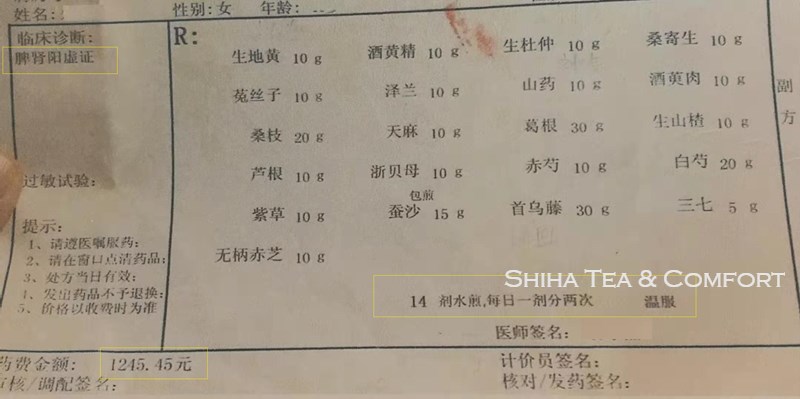 姓名:
性别:女 年龄:
临床诊断:
脾肾阳虚证
R:
生地黄 10 g 酒黄精 10 g 生杜仲 10 g 桑寄生 10 g
菟丝子 10 g 泽兰 10 g 山药 10 g 酒萸肉 10 g
桑枝 20 g 天麻 10 g 葛根 30 g 生山楂 10 g
芦根 10 g 浙贝母 10 g 赤芍 10 g 白芍 20 g
包煎
紫草 10 g 蚕沙 15 g 首乌藤 30 g 三七 5 g
无柄赤芝 10 g
副方
过敏试验:
提示:
1、请遵医嘱服药;
2、请在窗口点清药品;
3、处方当日有效;
4、发出药品不予退换;
5、价格以收费时为准
SHIHA TEA & COMFORT
14 剂水煎,每日一剂分两次 温服
医师签名:
药费金额: 1245.45元
计价员签名:
审核/调配签名:
核对/发药签名: